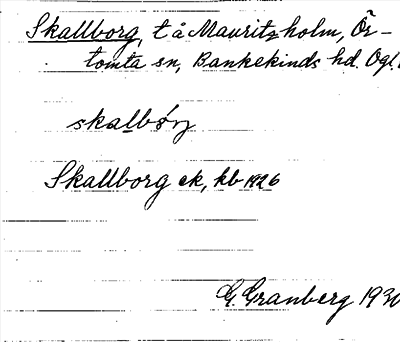 Skallborg, t å Mauritzholm, Ör-
tomta sn, Bankekinds hd. Ögl.
skalbørj
Skallborg ek, kb 1826
G. Granberg 1930